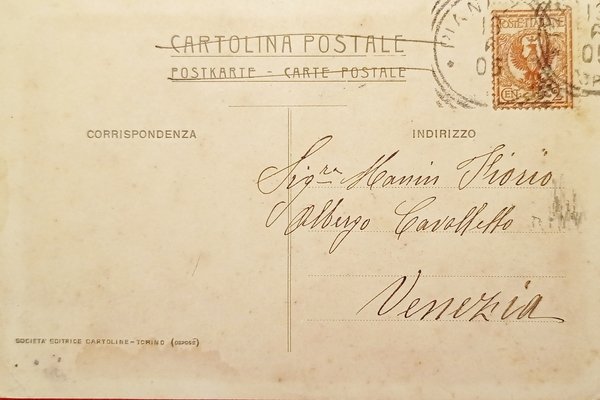 CARTOLINA POSTALE
POSTKARTE - CARTE POSTALE
CORRISPONDENZA
INDIRIZZO
Sigra Manin Fiorio
Albergo Cavalletto
Venezia
SOCIETÀ EDITRICE CARTOLINE - TORINO (DEPOSÉ)